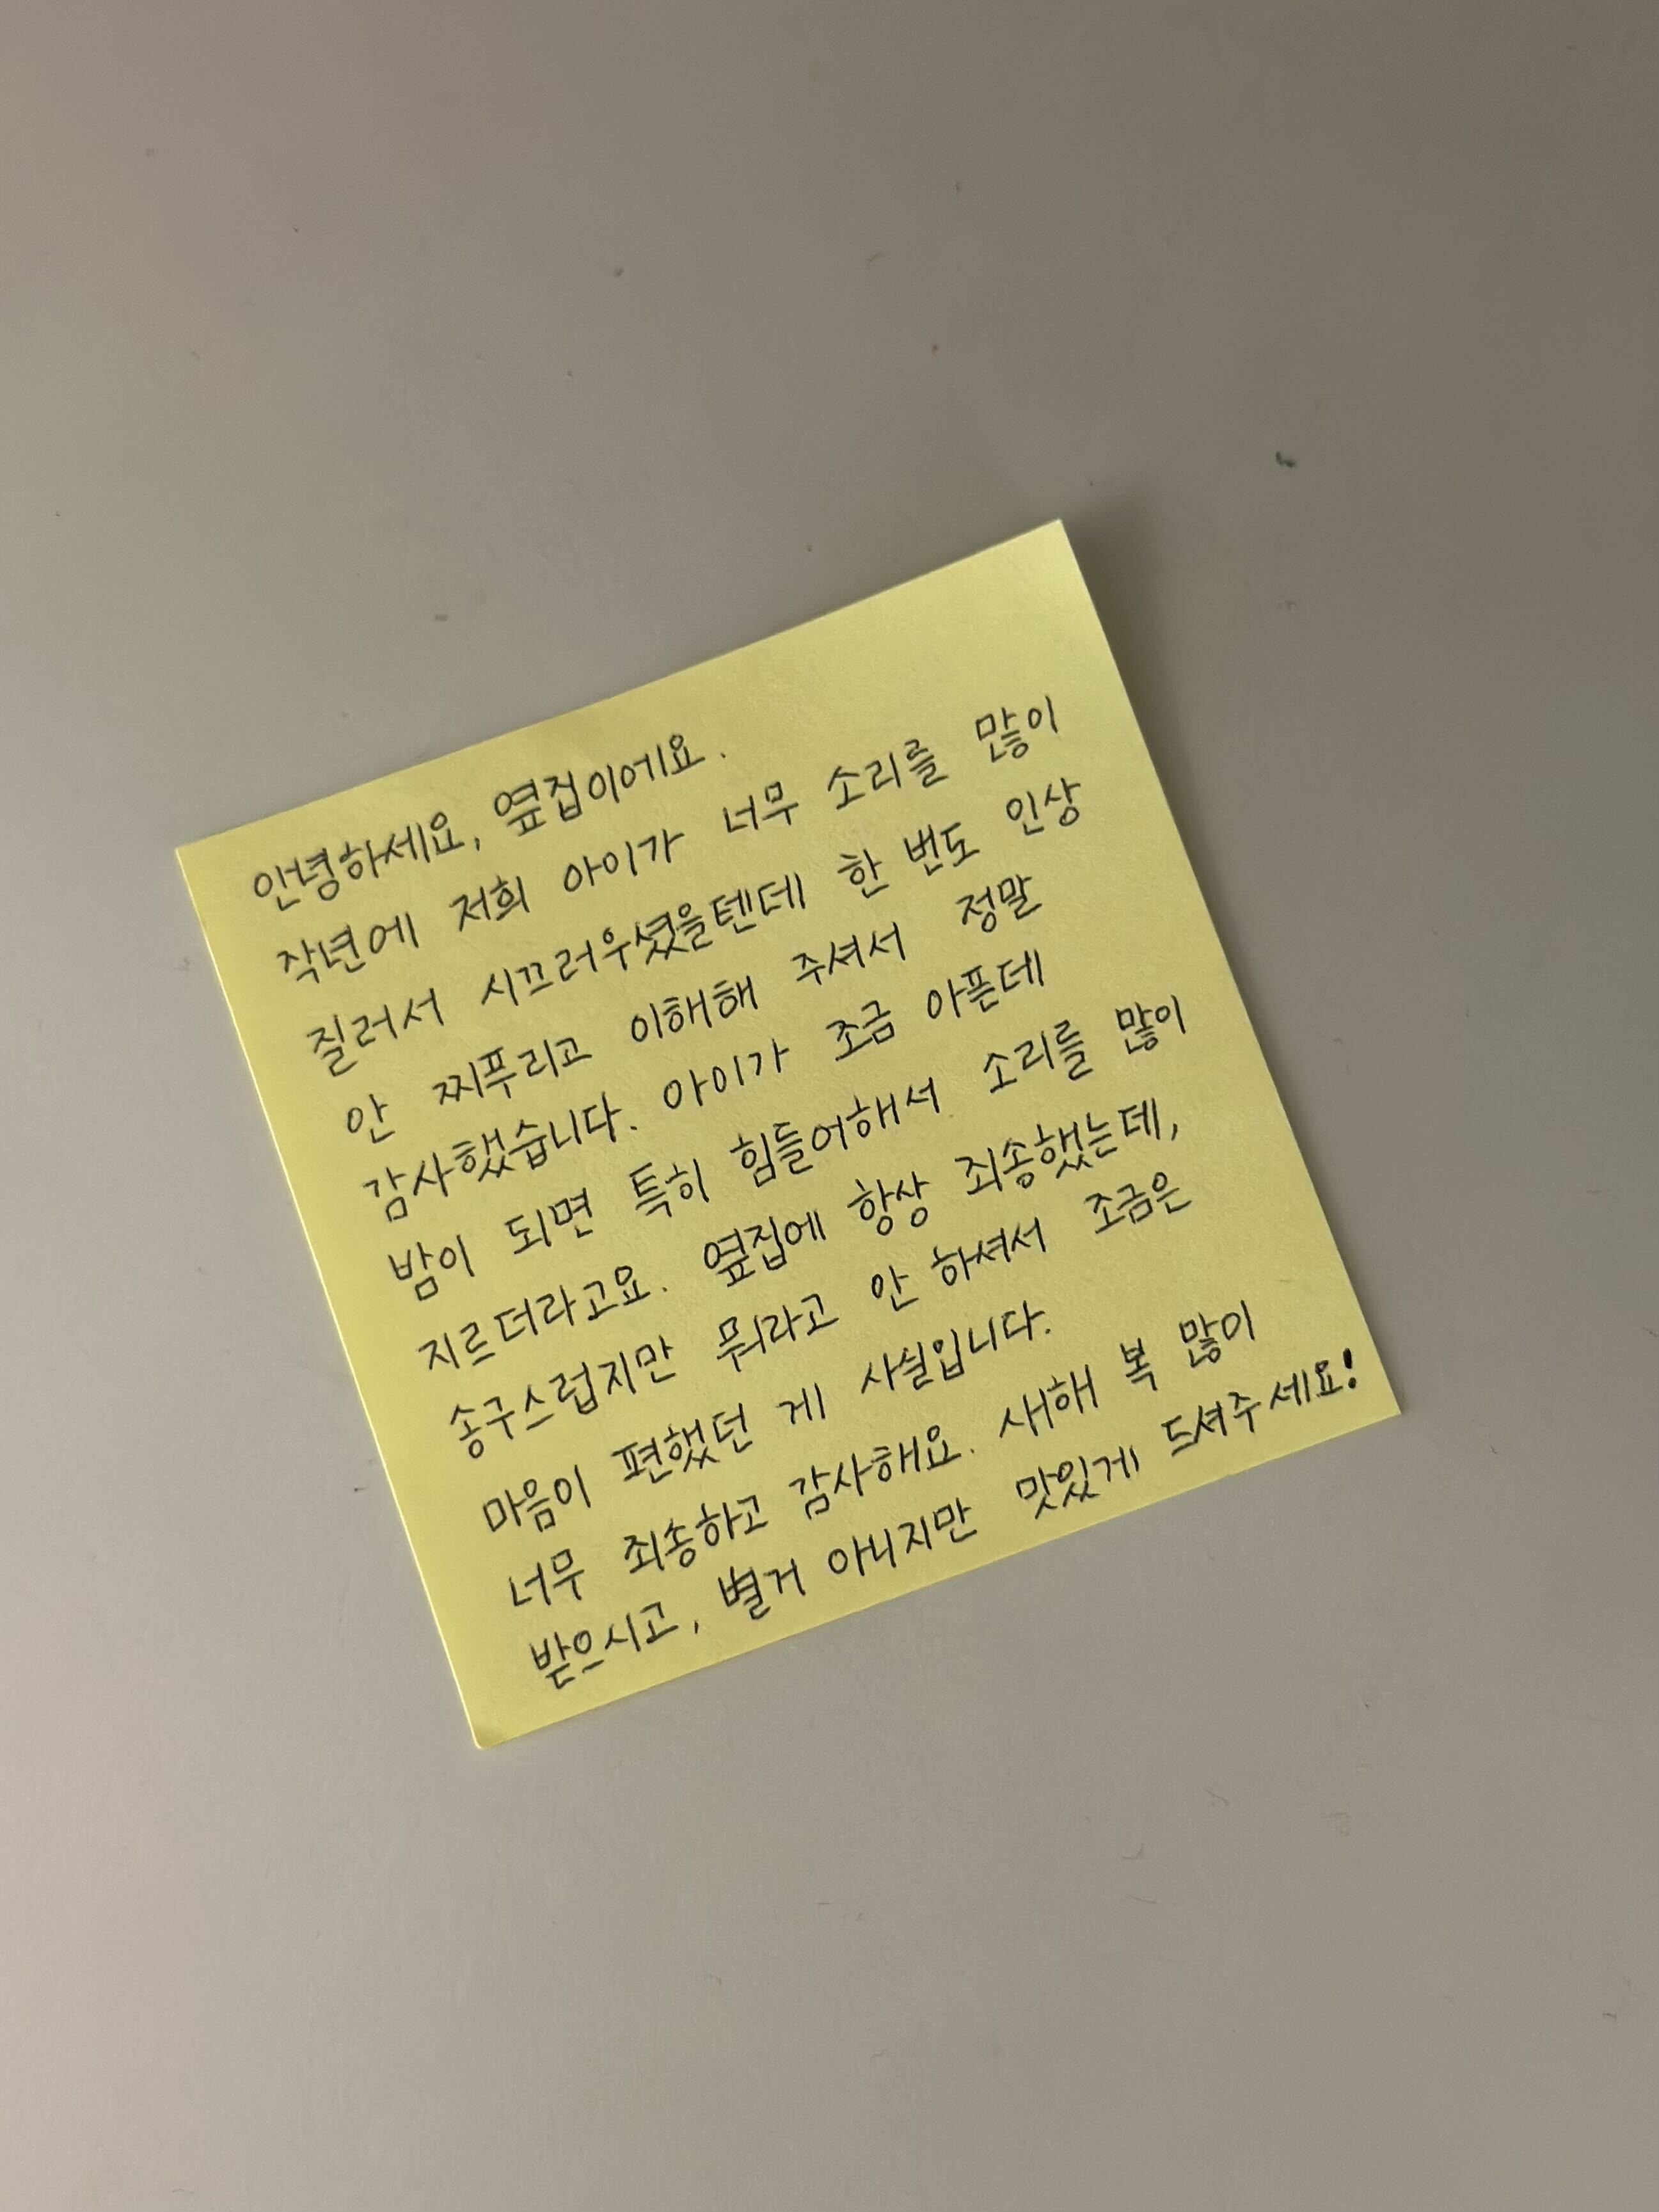 안녕하세요, 옆집이에요.
작년에 저희 아이가 너무 소리를 많이
질러서 시끄러우셨을텐데 한 번도 인상
안 찌푸리고 이해해 주셔서 정말
감사했습니다. 아이가 조금 아픈데
밤이 되면 특히 힘들어해서 소리를 많이
지르더라고요. 옆집에 항상 죄송했는데,
송구스럽지만 뭐라고 안 하셔서 조금은
마음이 편했던 게 사실입니다.
너무 죄송하고 감사해요. 새해 복 많이
받으시고, 별거 아니지만 맛있게 드셔주세요!